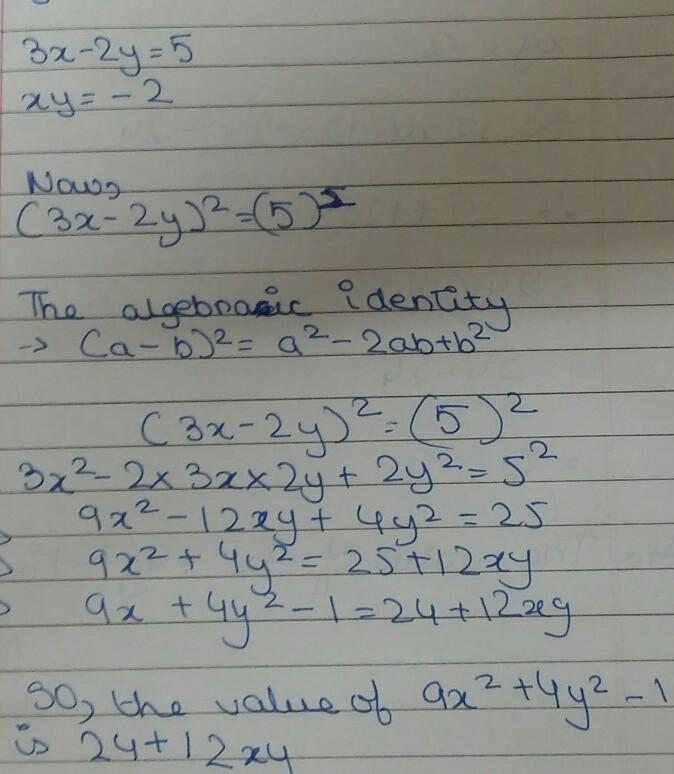 3x-2y=5
xy=-2
Now,
(3x-2y)²=(5)²
The algebraic identity
→ (a-b)²= a²-2ab+b²
(3x-2y)²=(5)²
3x²-2×3x×2y+2y²=5²
9x²-12xy+4y²=25
9x²+4y²=25+12xy
9x+4y²-1=24+12xy
So, the value of 9x²+4y²-1
is 24+12xy